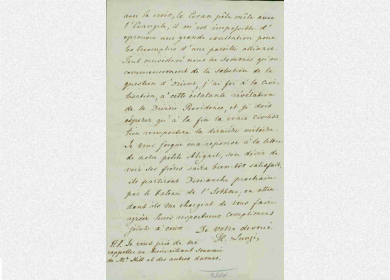 avec la croix, le Coran pêle mêle avec
l'Evangile, il m'est impossible d'
éprouver une grande exaltation pour
les triomphes d'une pareille alliance.
Tout considéré nous ne sommes qu'au
commencement de la solution de la
question d'Orient, j'ai foi à la Civi-
lisation, à cette éclatante révélation
de la Divine Providence, et je dois
espérer qu'à la fin la vraie Civilisa-
tion remportera la dernière victoire.
Je vous la réponse à la lettre
de notre petite Abigail, son désir de
voir ses frères sera bientôt satisfait,
ils partiront Dimanche prochain
par le bateau de l' en atten-
dant ils me chargent de vous faire
agréer leurs respectueux compliments
joints à ceux De votre dévoué
P.S. Je vous prie de me
rappeler au bienveillant Souvenir
de Mrs Hill et des autres dames.